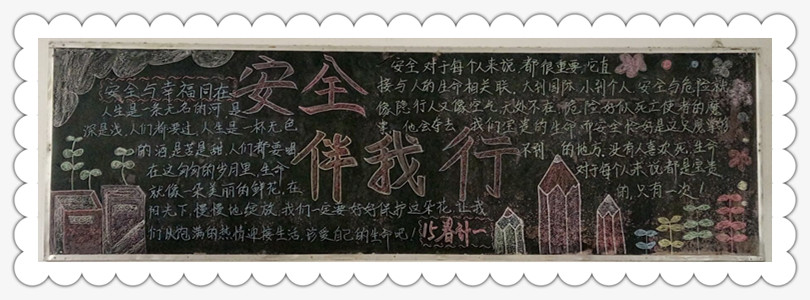 安全
伴我行
安全与幸福同在
人生是一条无名的河,是
深是浅,人们都要过,人生是一杯无色
的酒,是苦是甜,人们都要喝
在这匆匆的岁月里,生命
就像一朵美丽的鲜花,在
阳光下,慢慢地绽放,我们一定要好好保护这朵花,让我
们以饱满的热情迎接生活,珍爱自己的生命吧!
安全对于每个人来说,都很重要,它直
接与人的生命相关联,大到国际,小到个人,安全与危险就
像隐行人又像空气,无处不在,危险好似死亡使者的魔
他会夺去我们宝贵的生命,而安全恰好是这只魔掌
不到的地方,没有人喜欢死,生命
对于每个人来说都是宝贵
的,只有一次!
15春计一